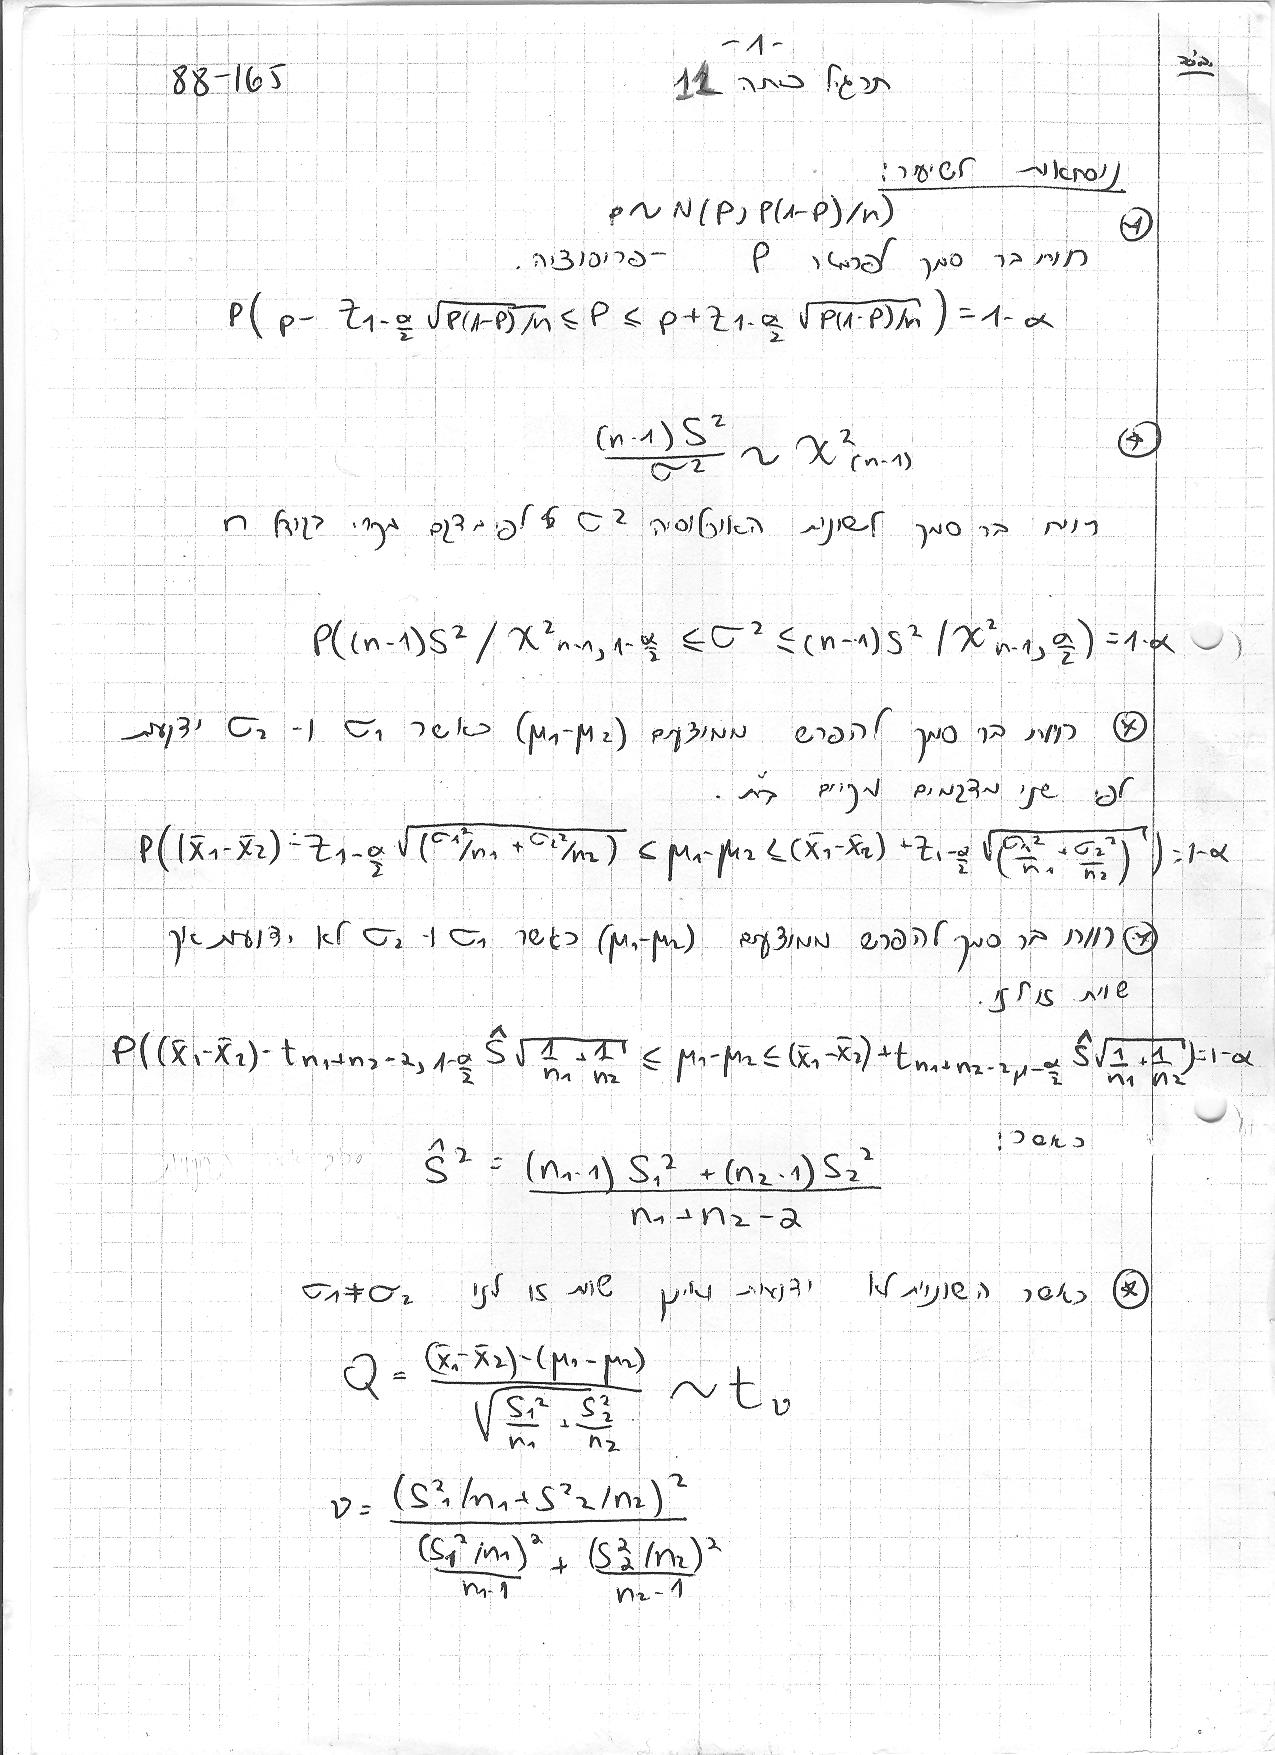 -1-
בס"ד
88-165
תרגיל כתה 11
נוסחאות לשיעור:
p ~ N(P, P(1-P)/n)
רווח בר סמך לפרמטר P - פרופורציה.
P( p - Z1-α/2 √P(1-P)/n ≤ P ≤ p + Z1-α/2 √P(1-P)/n ) = 1-α
(n-1)S² / σ² ~ χ²(n-1)
רווח בר סמך לשונות האוכלוסיה σ² לפי מדגם מקרי בגודל n
P((n-1)S² / χ²n-1, 1-α/2 ≤ σ² ≤ (n-1)S² / χ²n-1, α/2) = 1-α
רווח בר סמך להפרש ממוצעים (μ1-μ2) כאשר σ1 ו- σ2 ידועות
לפי שני מדגמים מקריים ב"ת.
P((x̄1-x̄2) - Z1-α/2 √(σ1²/n1 + σ2²/n2) ≤ μ1-μ2 ≤ (x̄1-x̄2) + Z1-α/2 √(σ1²/n1 + σ2²/n2)) = 1-α
רווח בר סמך להפרש ממוצעים (μ1-μ2) כאשר σ1 ו- σ2 לא ידועות אך
שוות זו לזו.
P((x̄1-x̄2) - tn1+n2-2, 1-α/2 Ŝ√1/n1 + 1/n2 ≤ μ1-μ2 ≤ (x̄1-x̄2) + tn1+n2-2, 1-α/2 Ŝ√1/n1 + 1/n2) = 1-α
כאשר:
Ŝ² = (n1-1)S1² + (n2-1)S2² / n1+n2-2
כאשר השונויות לא ידועות ואינן שוות זו לזו σ1≠σ2
Q = (x̄1-x̄2)-(μ1-μ2) / √S1²/n1 + S2²/n2 ~ tν
ν = (S²1/n1 + S²2/n2)² / (S1²/n1)²/n1-1 + (S2²/n2)²/n2-1